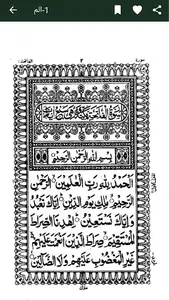 1-الم
بسم الله الرحمن الرحيم
الحمد لله رب العلمين الرحمن
الرحيم ملك يوم الدين اياك نعبد
واياك نستعين اهدنا الصراط
المستقيم صراط الذين انعمت عليهم
غير المغضوب عليهم ولا الضالين